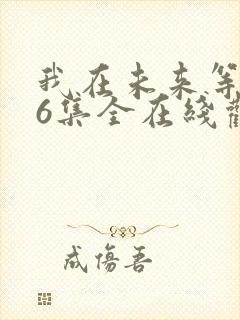 我在未来等
6集全在线
成伤吾